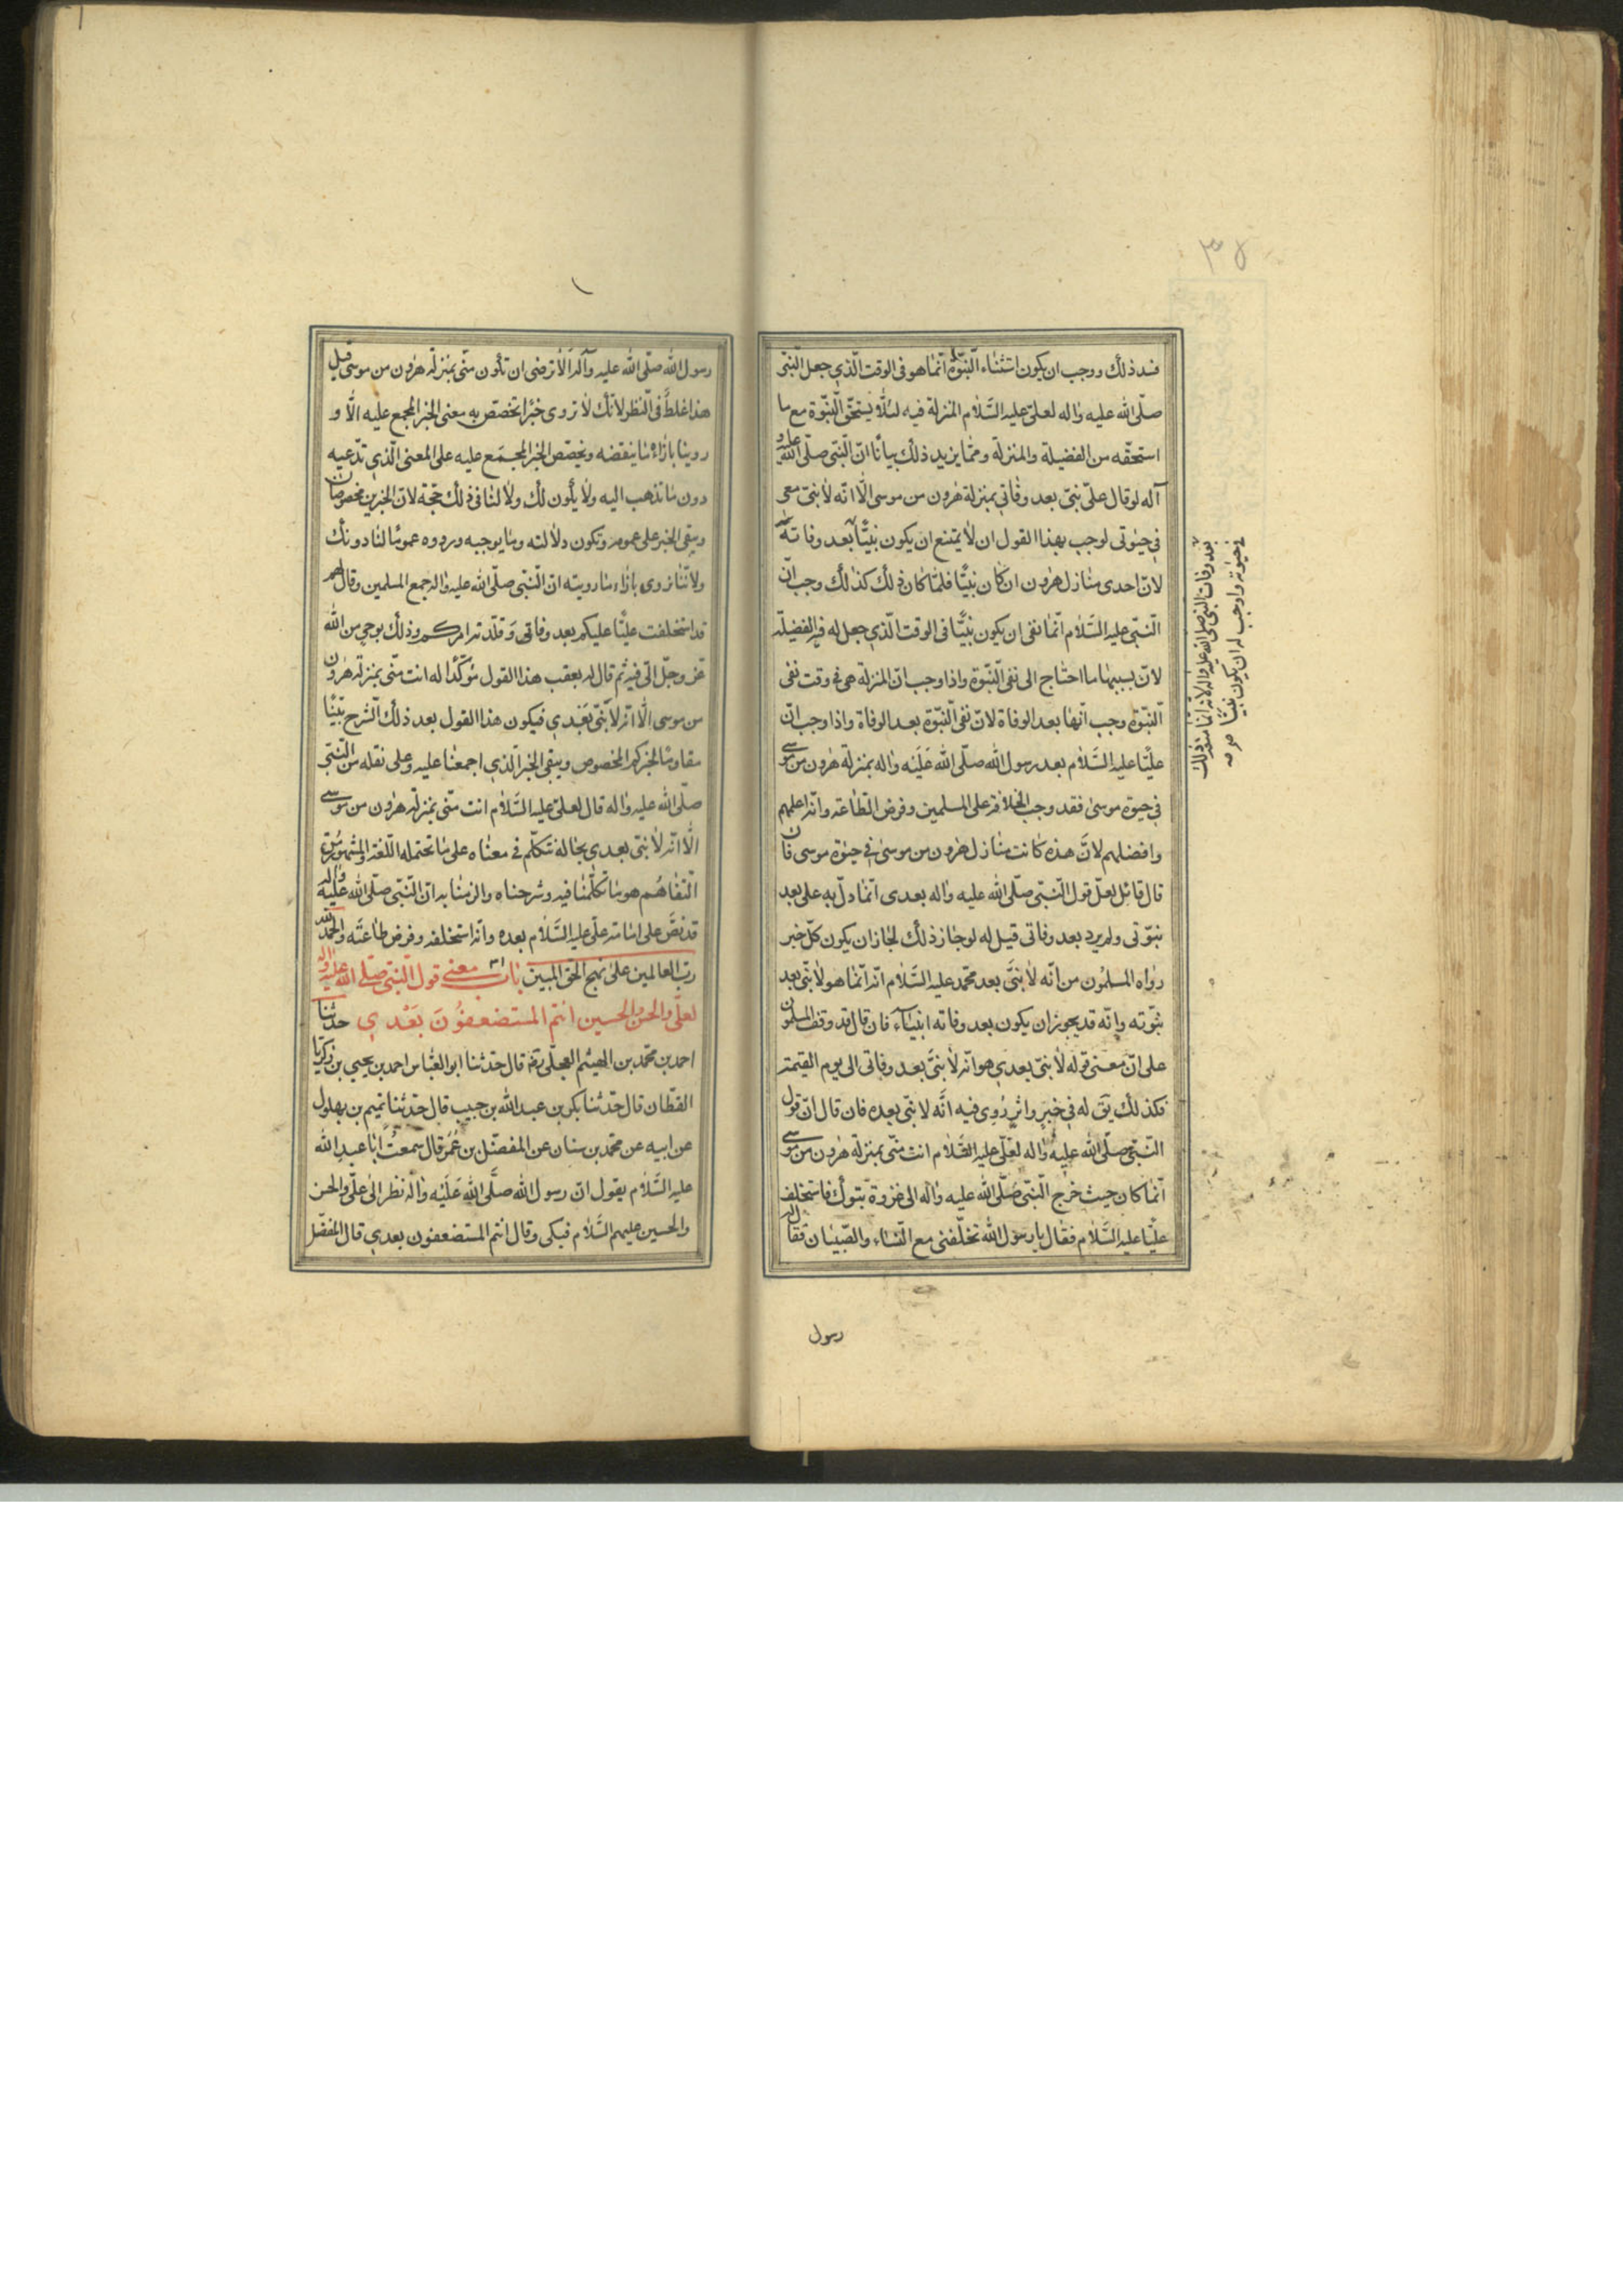 ٣٨
فسد ذلك ووجب ان يكون استثناء النبّوة انّما هو فى الوقت الّذي جعل النّبى
صلّى الله عليه واله لعلىّ عليه السّلام المنزلة فيه لئلّا يستحقّ النّبوّة مع ما
استحقّه من الفضيلة والمنزلة وممّا يزيد ذلك بيانًا انّ النّبى صلّى الله عليه و
آله لو قال علىّ منّى بعد وفاتى بمنزلة هٰرون من موسى الّا انّه لا نبىّ معى
في حيٰوتى لوجب بهذا القول ان لا يمتنع ان يكون نبيًّا بعد وفاته
لانّ احدى منازل هٰرون ان كان نبيًّا فلمّا كان ذلك كذلك وجب انّ
النّبىّ عليه السّلام انّما نفى ان يكون نبيًّا فى الوقت الّذي جعل له فيه الفضيلة
لانّ بسببها ما احتاج الى نفى النّبّوة واذا وجب انّ المنزلة هى فى وقت نفى
النّبوّة وجب انّها بعد الوفاة لانّ نفى النّبوّة بعد الوفاة واذا وجب انّ
عليًّا عليه السّلام بعد رسول الله صلّى الله عليه واله بمنزلة هٰرون من موسى
فى حيوة موسى فقد وجب الخلافة على المسلمين وفرض الطّاعة وانّه اعلمهم
وافضلهم لانّ هذه كانت منازل هٰرون من موسى في حيٰوة موسى فان
قال قائل لعلّ قول النّبىّ صلّى الله عليه واله بعدى انّما دلّ به على بعد
نبوّتى ولم يرد بعد وفاتى قيل له لو جاز ذلك لجاز ان يكون كلّ خبر
رواه المسلمون من انّه لا نبىّ بعد محمّد عليه السّلام انّه انّما هو لا نبىّ بعد
نبوّته وانّه قد يجوز ان يكون بعد وفاته انبياء فان قال قد وقف المسلمون
على انّ معنى قوله لا نبىّ بعدي هو انّه لا نبىّ بعد وفاتى الى يوم القيمة
فكذلك يق له في خبر واثر رُوى فيه انّه لا نبى بعده فان قال انّ قول
النّبىّ صلّى الله عليه واله لعلّى عليه السّلام انت منّى بمنزلة هٰرون من موسى
انّما كان حيث خرج النّبى صلّى الله عليه واله الى غزوة تبوك فاستخلف
عليًّا عليه السّلام فقال يا رسول الله تخلّفنى مع النّساء والصّبيان فقال له
رسول
بعد وفات النبى صلى الله عليه واله لانه انما منعه ذلك
في حيوته واوجب له ان يكون نبيّا
رسول الله صلّى الله عليه وآله الا ترضى ان تكون منّى بمنزلة هٰرون من موسى قيل
هذا غلط فى النّظر لانّك لا تروى خبرًا تخصّص به معنى الخبر المجمع عليه الّا و
روينا بازائه ما ينقضه ويخصّص الخبر المجمع عليه على المعنى الّذي ندّعيه
دون ما تذهب اليه ولا يكون لك ولا لنا فى ذلك حجّة لانّ الخبرين مخصوصان
ويبقى الخبر على عمومه ويكون دلالته وما يوجبه وروده عمومًا لنا دونك
ولانّنا نروى بازاء ما رويته انّ النّبى صلّى الله عليه واله جمع المسلمين وقال لهم
قد استخلفت عليًّا عليكم بعد وفاتى وقلّدته امركم وذلك بوحي من الله
عزّ وجلّ الىّ فيه ثم قال له بعقب هذا القول مؤكّدًا له انت منّى بمنزلة هٰرون
من موسى الّا انّه لا نبّى بعدي فيكون هذا القول بعد ذلك الشّرح بيّنًا
مقاومًا لخبركم المخصوص ويبقى الخبر الّذي اجمعنا عليه وعلى نقله من النّبىّ
صلّى الله عليه واله قال لعلىّ عليه السّلام انت منّى بمنزلة هٰرون من موسى
الّا انّه لا نبىّ بعدي بحاله نتكلّم فى معناه على ما تحتمله اللّغة والمشهور من
التّفاهم هو ما تكلّمنا فيه وشرحناه والزمنا به انّ النّبىّ صلّى الله عليه واله
قد نصّ على امامة علىّ عليه السّلام بعده وانّه استخلفه وفرض طاعته والحمد لله
ربّ العالمين على نهج الحق المبين باب معنى قول النّبىّ صلّى الله عليه واله
لعلّى والحسن والحسين انتم المستضعفون بعدي حدثنا
احمد بن محمّد بن الهيثم العجلّى قال حدّثنا ابو العبّاس احمد بن يحيى بن زكريّا
القطّان قال حدّثنا بكر بن عبد الله بن حبيب قال حدّثنا تميم بن بهلول
عن ابيه عن محمّد بن سنان عن المفضّل بن عمر قال سمعت ابا عبد الله
عليه السّلام يقول انّ رسول الله صلّى الله عليه واله نظر الى علّى والحسن
والحسين عليهم السّلام فبكى وقال انتم المستضعفون بعدي قال المفضّل